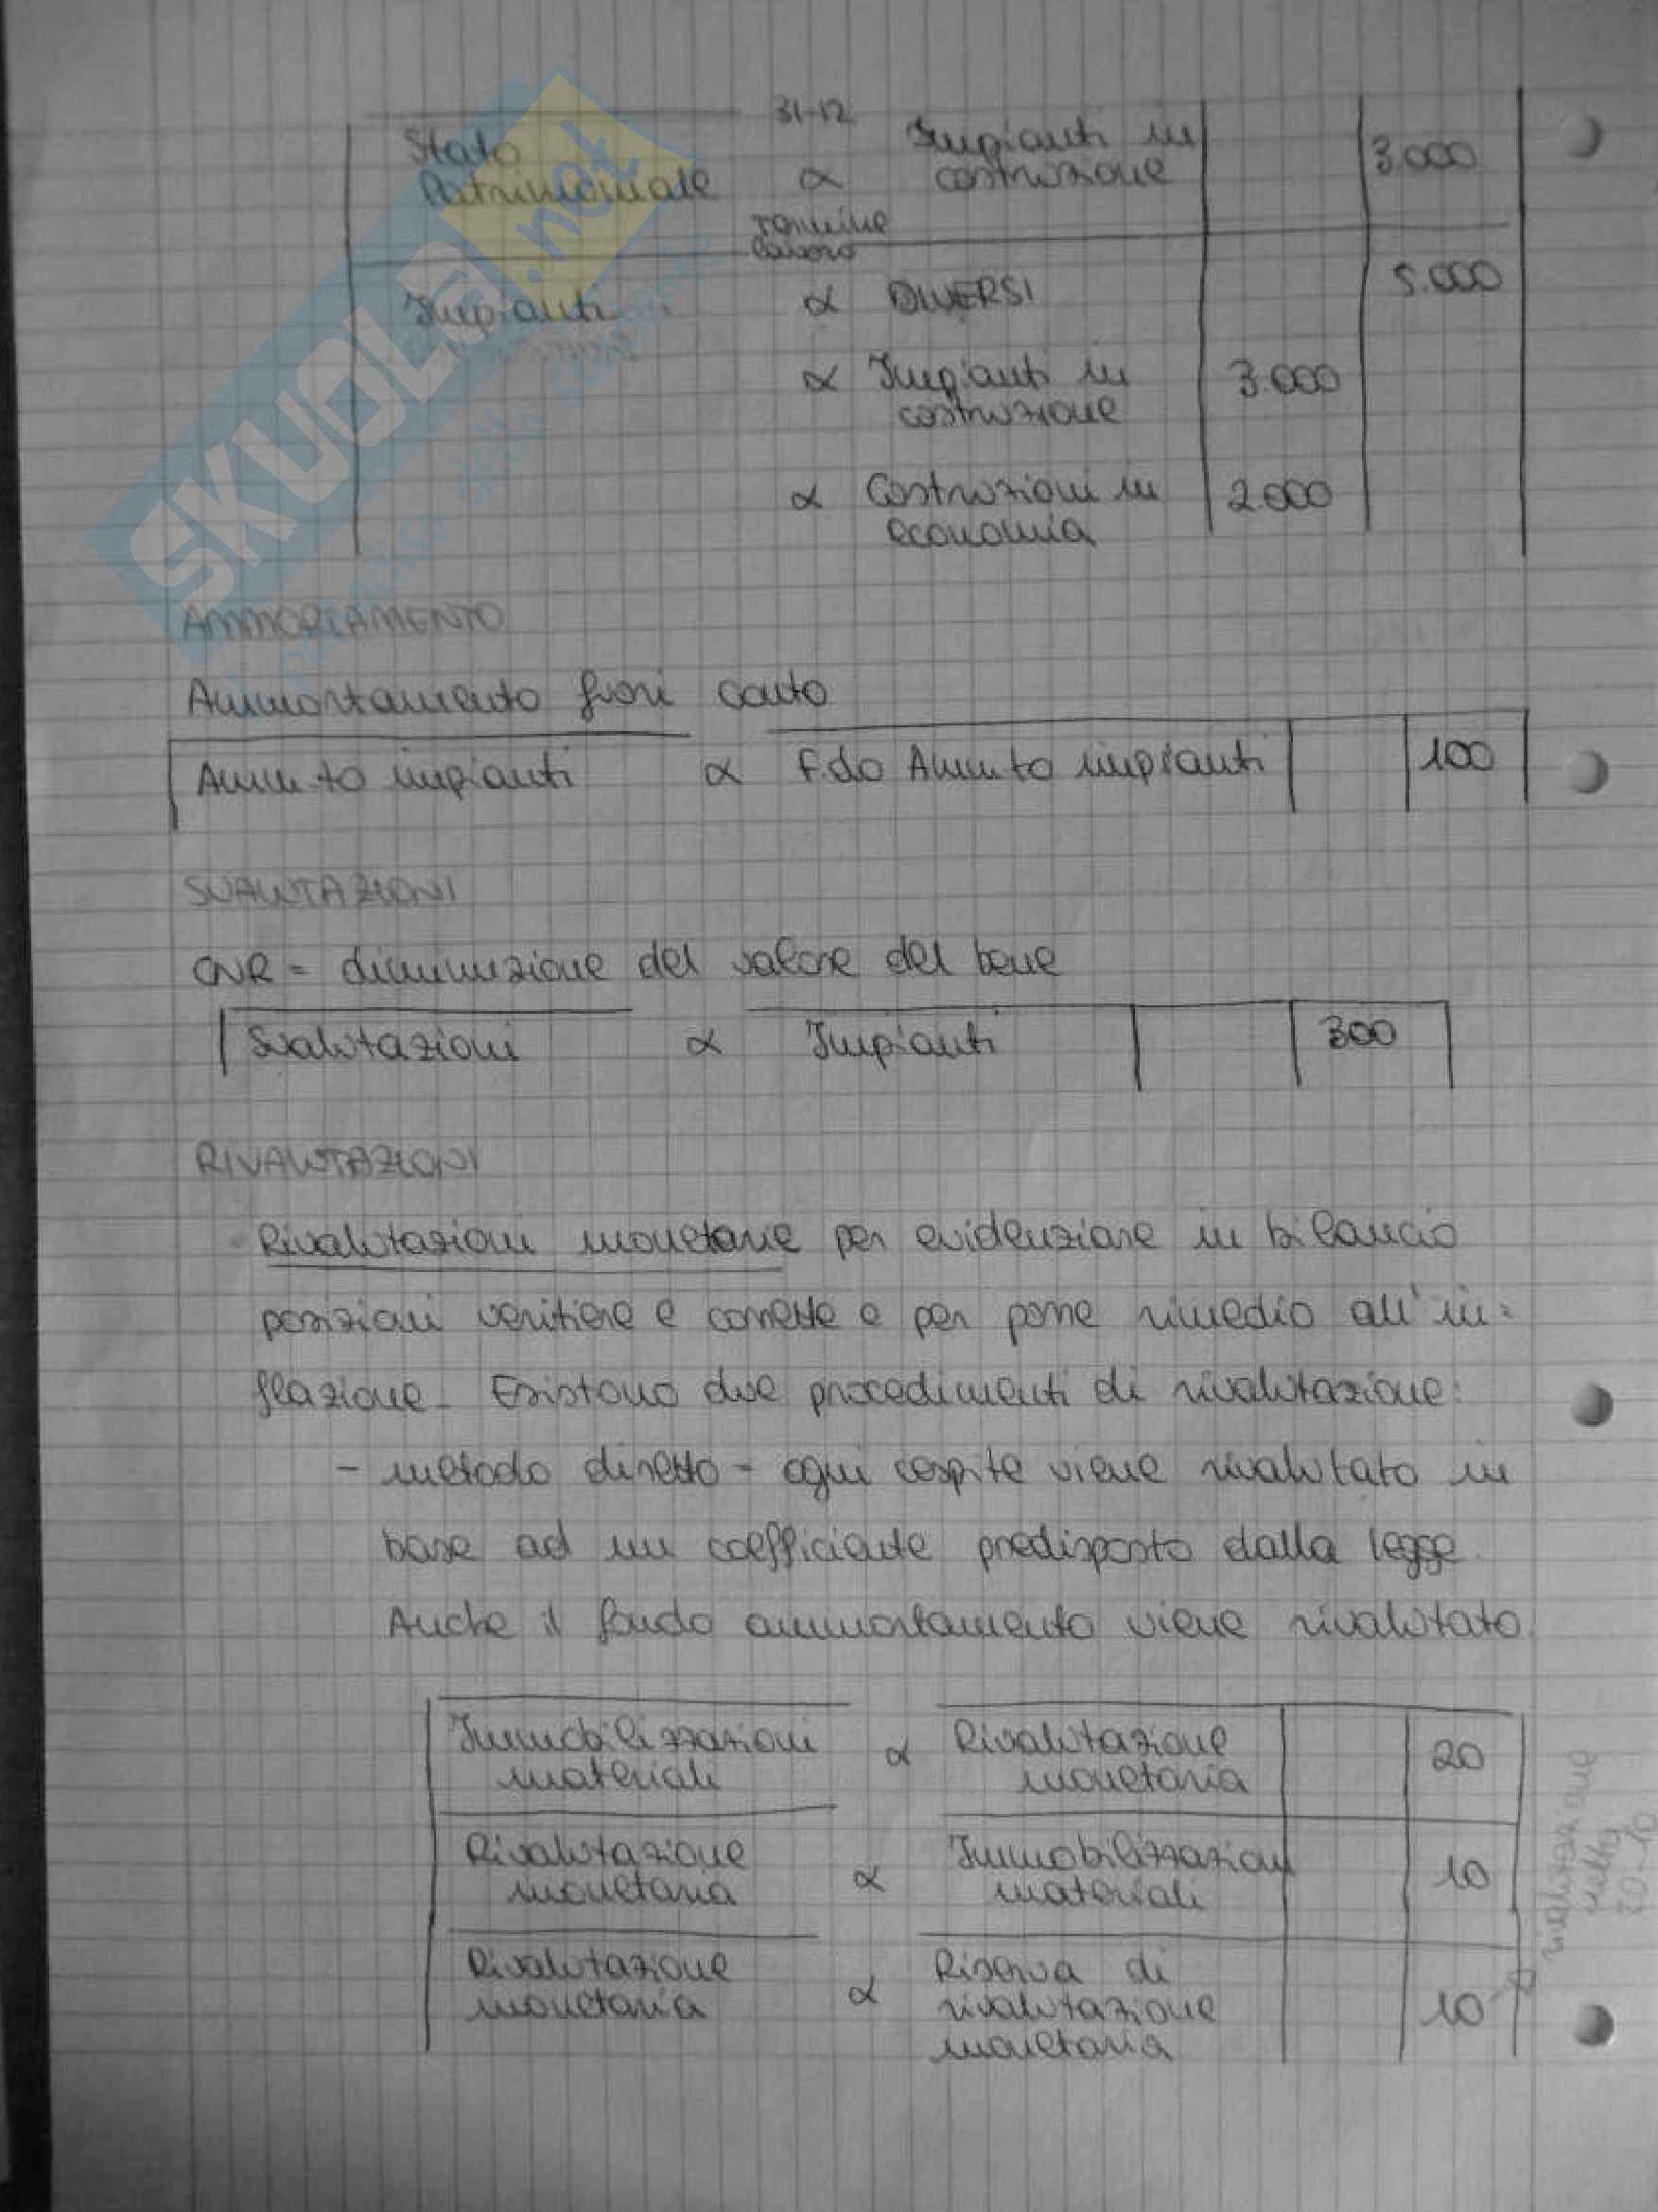 31-12
Stato Impianti in
Patrimoniale a costruzione 3.000
termine
lavoro
Impianti a DIVERSI 5.000
a Impianti in 3.000
costruzione
a Costruzioni in 2.000
economia
SKUOLA.net
AMMORTAMENTO
Ammortamento fuori conto
Amm.to impianti a F.do Amm.to impianti 100
SVALUTAZIONI
CNR = diminuzione del valore del bene
Svalutazioni a Impianti 300
RIVALUTAZIONI
Rivalutazioni monetarie per evidenziare in bilancio
posizioni veritiere e corrette e per porre rimedio all'in=
flazione. Esistono due procedimenti di rivalutazione:
- metodo diretto - ogni cespite viene rivalutato in
base ad un coefficiente predisposto dalla legge
Anche il fondo ammortamento viene rivalutato.
Immobilizzazioni a Rivalutazione 20
materiali monetaria
Rivalutazione a Immobilizzazioni 10
monetaria materiali
Rivalutazione a Riserva di
monetaria rivalutazione 10
monetaria
rivalutazione
netta
20-10